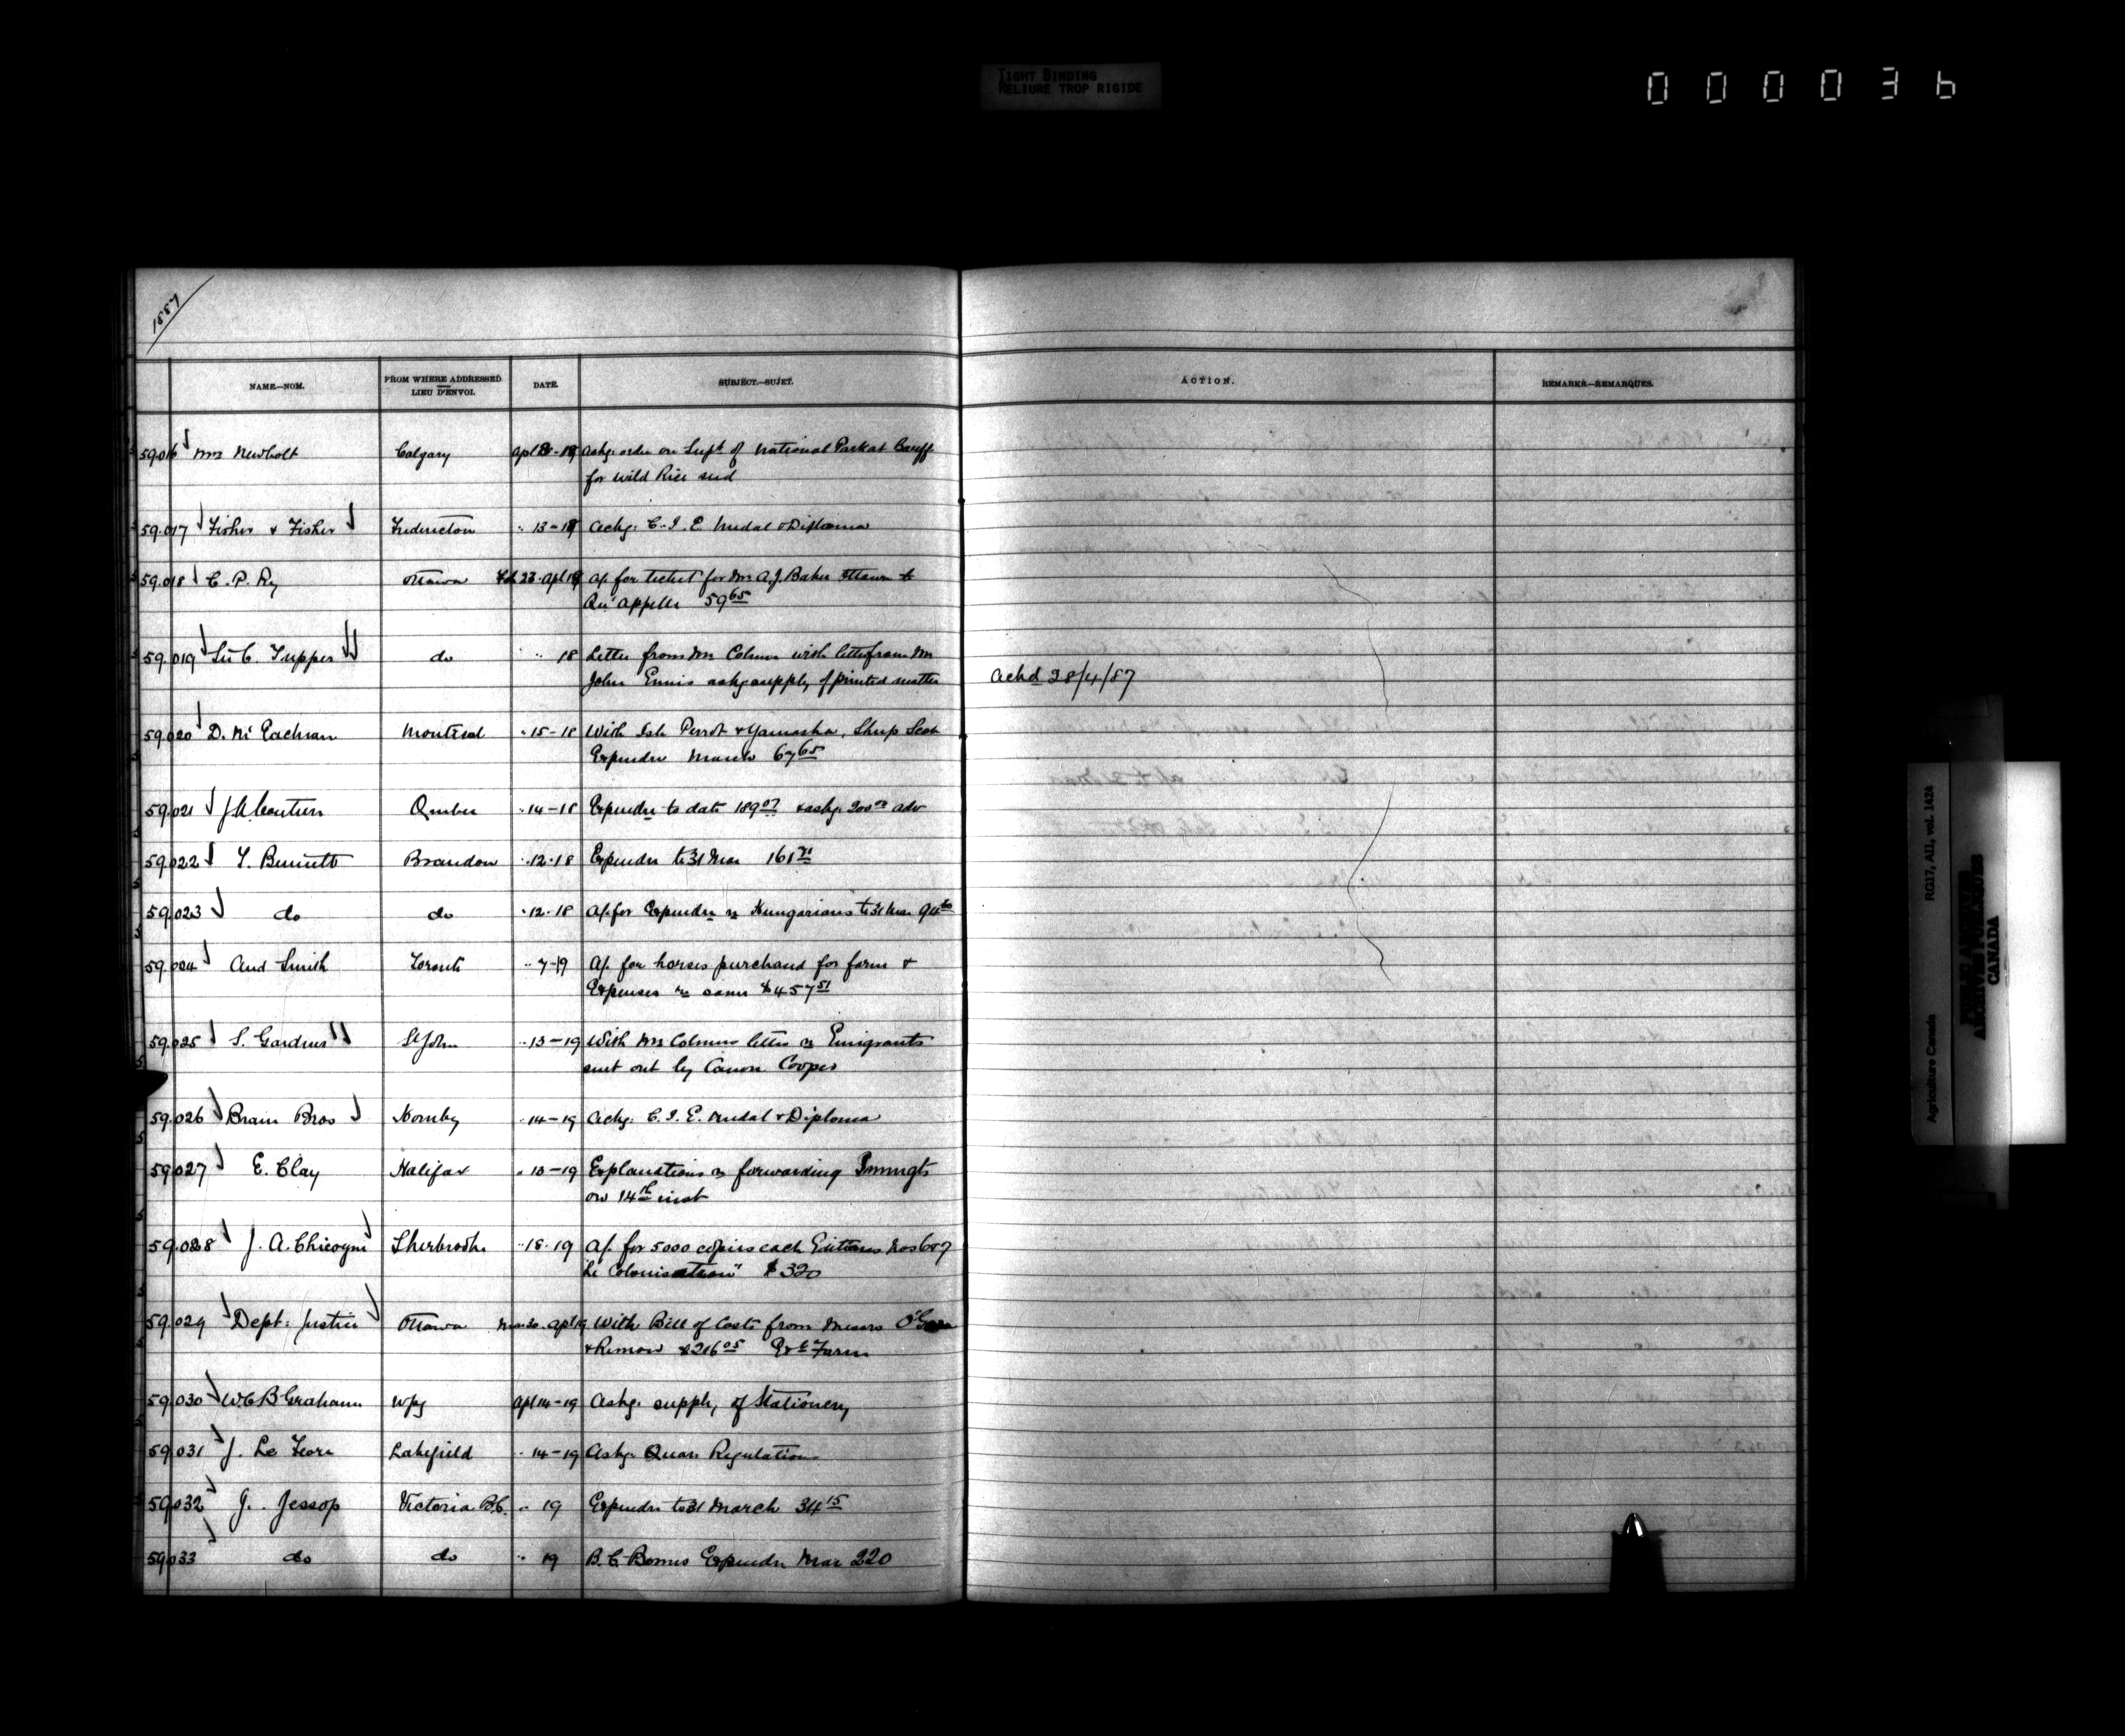 TIGHT BINDING
RELIURE TROP RIGIDE
000036
1887
NAME.—NOM. FROM WHERE ADDRESSED. LIEU D'ENVOI. DATE. SUBJECT.—SUJET. ACTION. REMARKS.—REMARQUES.
59.016 Mrs Newbolt Calgary Apl 8-18 Askg order on Supt of National Park at Banff
for wild Rice seed
59.017 Fisher & Fisher Fredericton " 13-18 Ackg. C.I.E Medal & Diploma
59.018 C.P. Ry Ottawa Feb 23-Apl 18 A/. for ticket for Mr A.J. Baker Ottawa to
Qu'appelle 59 65
59.019 Sir C. Tupper do " 18 Letter from Mr Colmer with letter from Mr
John Ennis askg supply of printed matter
Ackd 28/4/87
59.020 D. McEachran Montreal " 15-18 With Isle Perrot & Yamaska, Sheep Scab
Expendre March 67 65
59.021 Quebec " 14-18 Expendre to date 189 07 & askg 200 00 adv
59.022 T. Bennett Brandon " 12-18 Expendre to 31 Mar 161 71
59.023 do do " 12-18 A/. for Expendre re Hungarians to 31 Mar
59.024 And Smith Toronto " 7-19 A/. for horses purchased for farm &
Expenses re same $457 51
59.025 S. Gardner St John " 13-19 With Mr Colmers letter re Emigrants
sent out by Canon Cooper
59.026 Brain Bros Hornby " 14-19 Ackg. C.I.E. Medal & Diploma
59.027 E. Clay Halifax " 13-19 Explanations re forwarding Immigts
on 14th inst
59.028 J.A. Chicoyne Sherbrooke " 18-19 A/. for 5000 copies each Editions Nos 6 & 7
"Le Colonisateur" $320
59.029 Dept: Justice Ottawa Mar 30-Apl 19 With Bill of Costs from Messrs O'Gara
& Remon $216 05 Exl Farm
59.030 W.C.B Grahame Wpg Apl 14-19 Askg. supply of Stationery
59.031 J. Le Lakefield " 14-19 Askg. Quar Regulations
59.032 J. Jessop Victoria B.C. " 19 Expendre to 31 March 34 15
59.033 do do " 19 B.C. Bonus Expendre Mar 220
Agriculture Canada RG17, AII, vol. 1424
PUBLIC ARCHIVES
ARCHIVES PUBLIQUES
CANADA